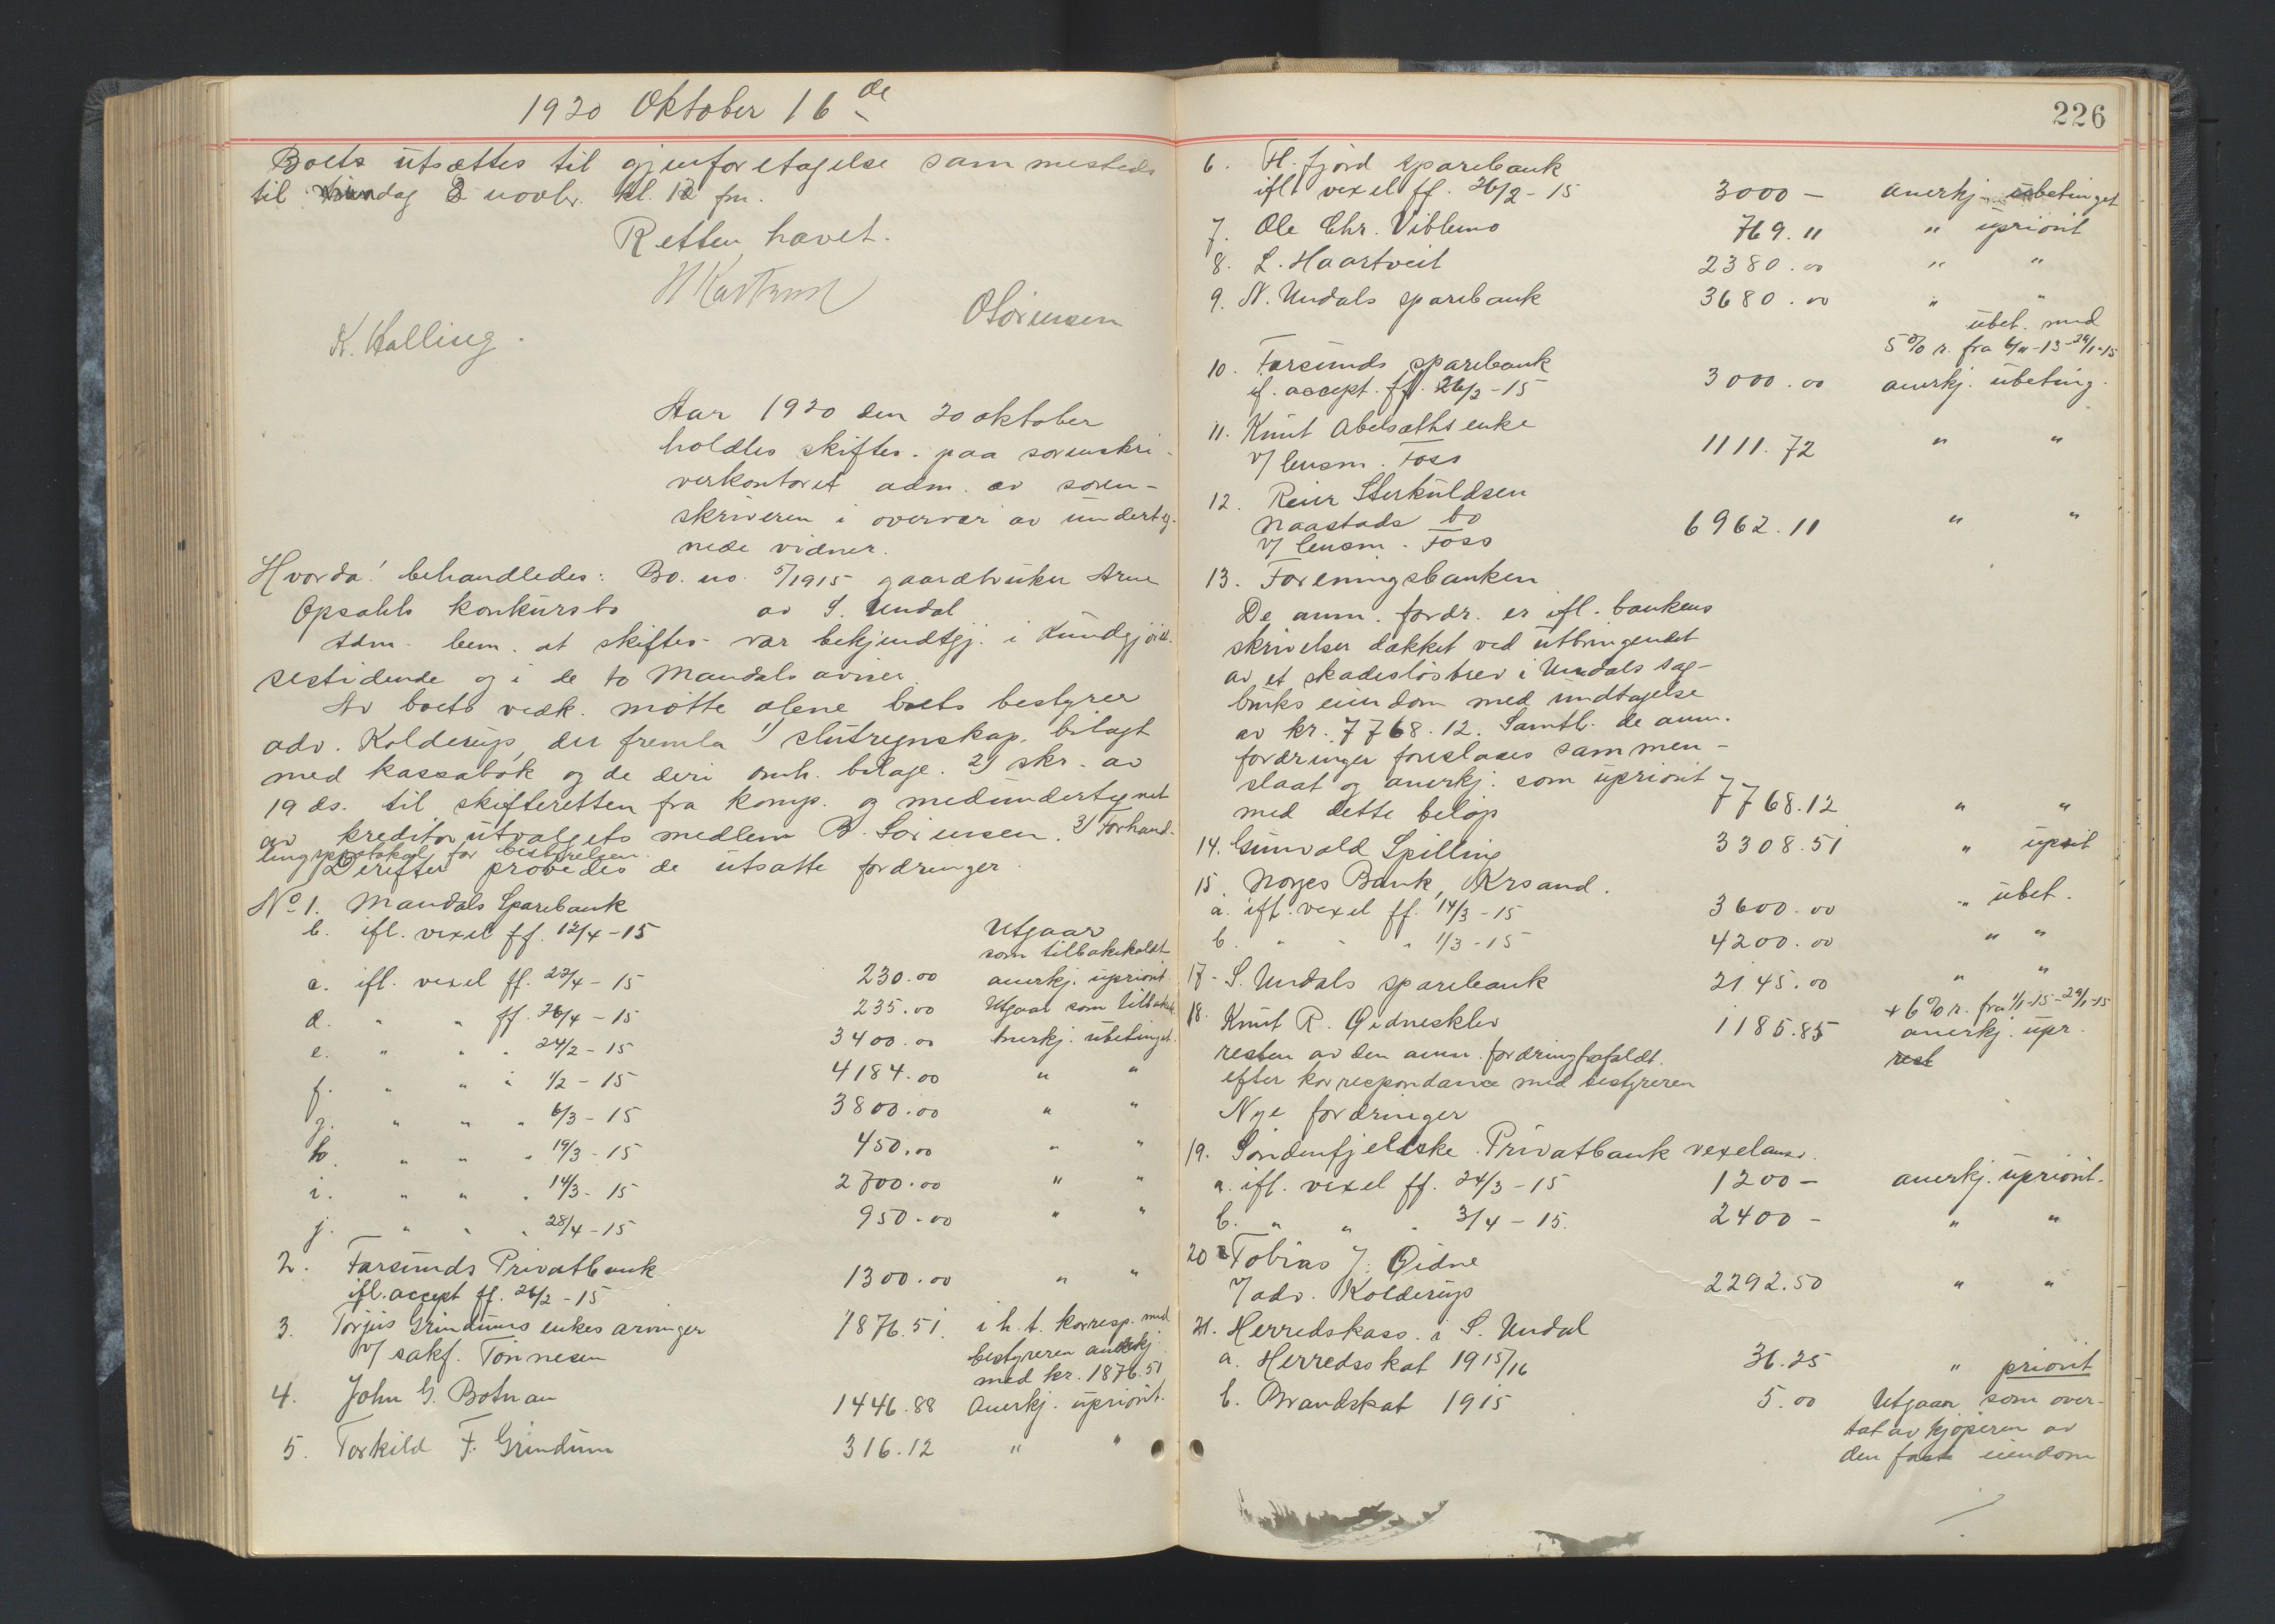 1920 Oktober 16de
Boets utsættes til gjenforetagelse sammesteds
til dag 2 novbr. kl. 12 fm.
Retten hævet.
OSörensen
K. Halling.
Aar 1920 den 20 oktober
holdtes skiftes. paa sorenskri-
verkontoret adm. av soren-
skriveren i overvær av underteg-
nede vidner.
Hvorda! behandledes: Bo. no. 5/1915 gaardbruker Arne
Opsahls konkursbo av S. Undal
Adm. bem. at skiftes- var bekjendtgj. i Kundgjörel-
sestidende og i de to Mandals aviser.
Av boets vedk. mötte alene boets bestyrer
adv. Kolderup, der fremla 1) slutregnskap, bilagt
med kassabok og de deri omh. bilage. 2) skr. av
19 ds. til skifteretten fra komp. og medundertegnet
av kreditorutvalgets medlem B. Sörensen. 3) Forhand-
lingsprotokol for bestyrelsen.
Derefter prövedes de utsatte fordringer.
No 1. Mandals Sparebank
b. ifl. vexel ff. 12/4-15 Utgaar
som tilbakekaldt
c. ifl. vexel ff. 22/4-15 230.00 anerkj. upriorit.
d. " " ff. 26/4-15 235.00 Utgaar som tilbakek.
e. " " " 24/2-15 3400.00 Anerkj. ubetinget.
f. " " " 1/2-15 4184.00 " "
g. " " " 6/3-15 3800.00 " "
h. " " " 19/3-15 450.00 " "
i. " " " 14/3-15 2700.00 " "
j. " " " 28/4-15 950.00 " "
2. Farsunds Privatbank
ifl. accept ff. 26/2-15 1300.00 " "
3. Torjus Grindums enkes arvinger 1876.51. i h. t. korresp. med
v/ sakf. Tönnesen bestyreren anerkj.
med kr. 1876.51
4. John G. Botnan 1446.88 Anerkj. upriorit.
5. Torkild F. Grindum 316.12 " "
226
6. H. fjord sparebank
ifl. vexel ff. 26/2-15 3000 — anerkj. ubetinget
7. Ole Chr. Viblemo 769.11 " upriorit
8. L. Haartveit 2380.00 " "
9. N. Undals sparebank 3680.00 " "
ubet. med
5% r. fra 6/11-13-29/1-15
10. Farsunds sparebank
if. accept. ff. 26/2-15 3000.00 anerkj. ubeting.
11. Knut Abelsæths enke
v/ lensm. Foss 1111.72 " "
12. Reier Sterkuldsen
Naastads bo
v/ lensm. Foss 6962.11 " "
13. Foreningsbanken
De anm. fordr. er ifl. bankens
skrivelser dækket ved utbringendet
av et skadeslösbrev i Undals sag-
bruks eiendom med undtagelse
av kr. 7768.12. Samtl. de anm.
fordringer foreslaaes sammen-
slaat og anerkj. som upriorit
med dette belöp 7768.12 " "
14. Gunvald Spilling 3308.51 " uprit
15. Norges Bank, Krsand.
a. ifl. vexel ff. 14/3-15 3600.00 " ubet.
b. " " " 1/3-15 4200.00 " "
17. S. Undals sparebank 2145.00 " "
+ 6% r. fra 1/1-15-29/1-15
18. Knut R. Gidneskler 1185.85 anerkj. upr.
resten av den anm. fordring frafaldt. rest
efter korrespondance med bestyreren
Nye fordringer
19. Söndenfjeldske Privatbank vexelansv.
a. ifl. vexel ff. 24/3-15 1200 — anerkj. upriorit.
b. " " " 3/4-15. 2400 — " "
20 Tobias J. Gidne
v/ adv. Kolderup 2292.50 " "
21. Herredskass. i S. Undal
a. Herredsskat 1915/16 36.25 " priorit
b. Brandskat 1915 5.00 Utgaar som over-
tat av kjöperen av
den faste eiendom